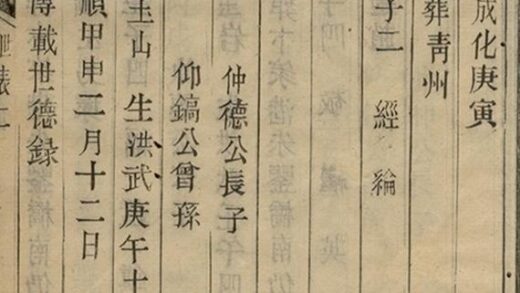 成化庚寅
葬靑州
子二 經 綸
仲德公長子
仰鎬公曾孫
玉山 生洪武庚午十
順甲申二月十二日
傳載世德録
世表